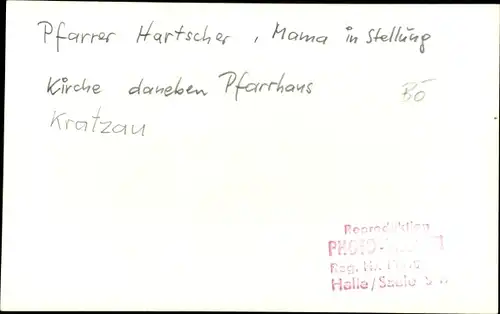 Pfarrer Hartscher, Mama in Stellung
Kirche daneben Pfarrhaus
BÖ
Kratzau
Reproduktion
PHOTO-
Reg. Nr.
Halle/Saale S